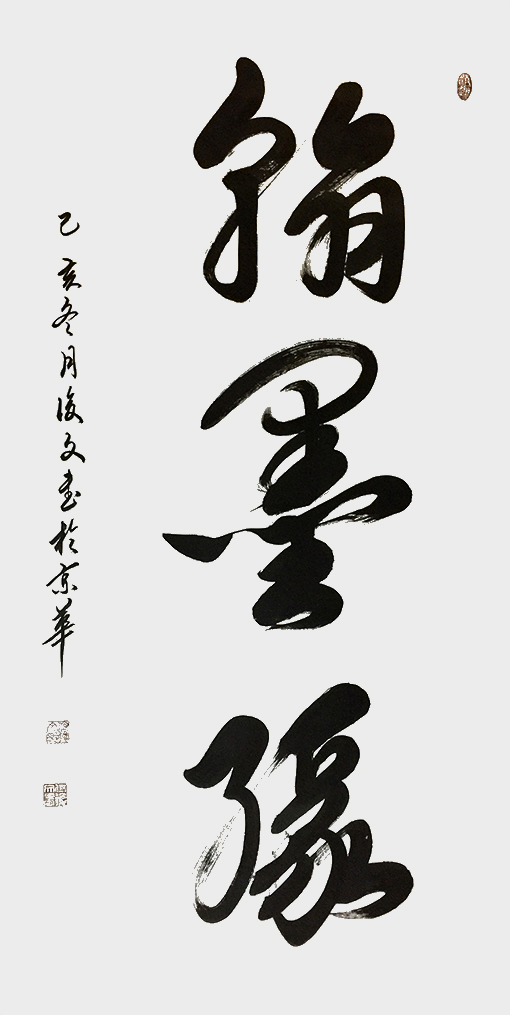 翰墨缘
己亥冬月俊文书於京华